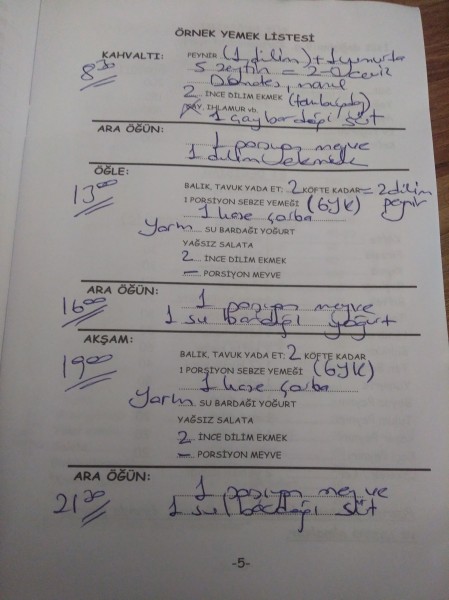 ÖRNEK YEMEK LİSTESİ
KAHVALTI: PEYNİR (1 dilim) + 1 yumurta
8³⁰ 5 zeytin = 2-0 ceviz
Domates, marul
2 İNCE DİLİM EKMEK (tambuğday)
ÇAY, IHLAMUR vb.
1 çay bardağı süt
ARA ÖĞÜN: 1 porsiyon meyve
1 dilim ekmek
ÖĞLE:
13⁰⁰ BALIK, TAVUK YADA ET: 2 KÖFTE KADAR = 2 dilim peynir
1 PORSİYON SEBZE YEMEĞİ (6YK)
1 kase çorba
Yarım SU BARDAĞI YOĞURT
YAĞSIZ SALATA
2 İNCE DİLİM EKMEK
— PORSİYON MEYVE
ARA ÖĞÜN: 1 porsiyon meyve
16⁰⁰ 1 su bardağı yoğurt
AKŞAM:
19⁰⁰ BALIK, TAVUK YADA ET: 2 KÖFTE KADAR
1 PORSİYON SEBZE YEMEĞİ (6YK)
1 kase çorba
Yarım SU BARDAĞI YOĞURT
YAĞSIZ SALATA
2 İNCE DİLİM EKMEK
— PORSİYON MEYVE
ARA ÖĞÜN: 1 porsiyon meyve
21³⁰ 1 su bardağı süt
-5-